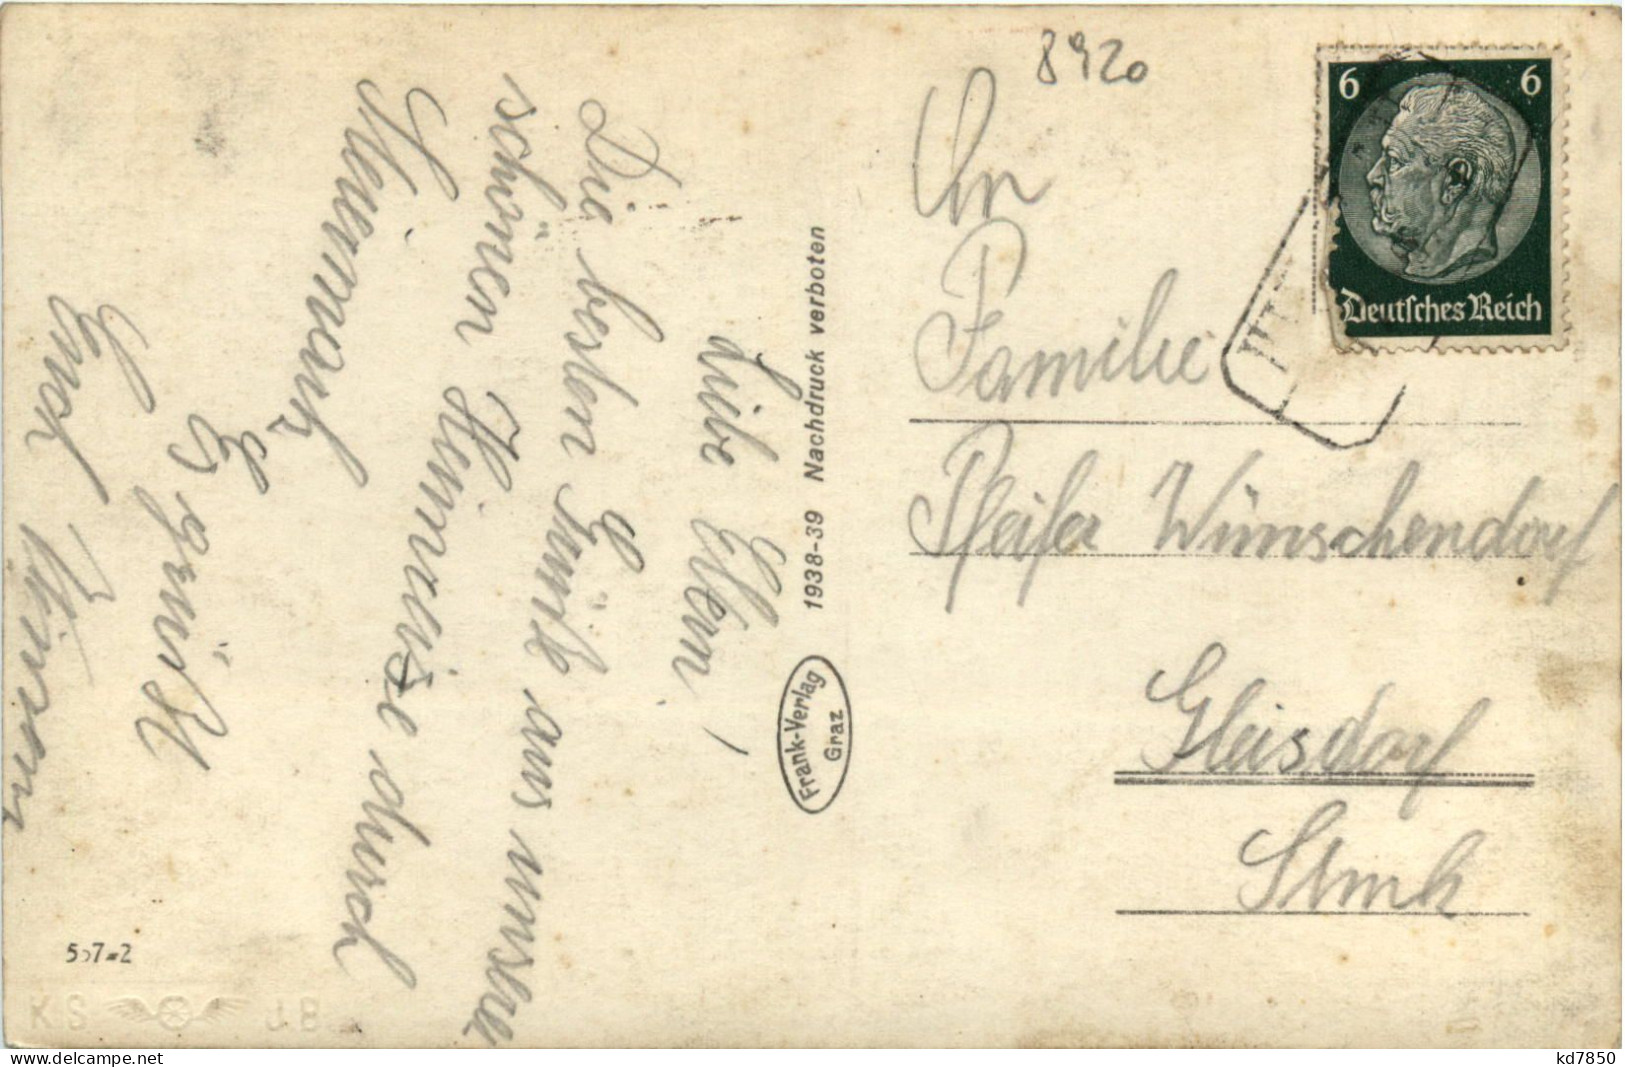 8920
An
Familie
Pfeifer Wünschendorf
Gleisdorf
Stmk
6 6
Deutsches Reich
1938-39 Nachdruck verboten
Frank-Verlag
Graz
Liebe Eltern!
Die besten Grüße aus unsere
schönen Heimreise durch
Steiermark
Es grüßt
Euch
557-2
KS JB
www.delcampe.net
kd7850